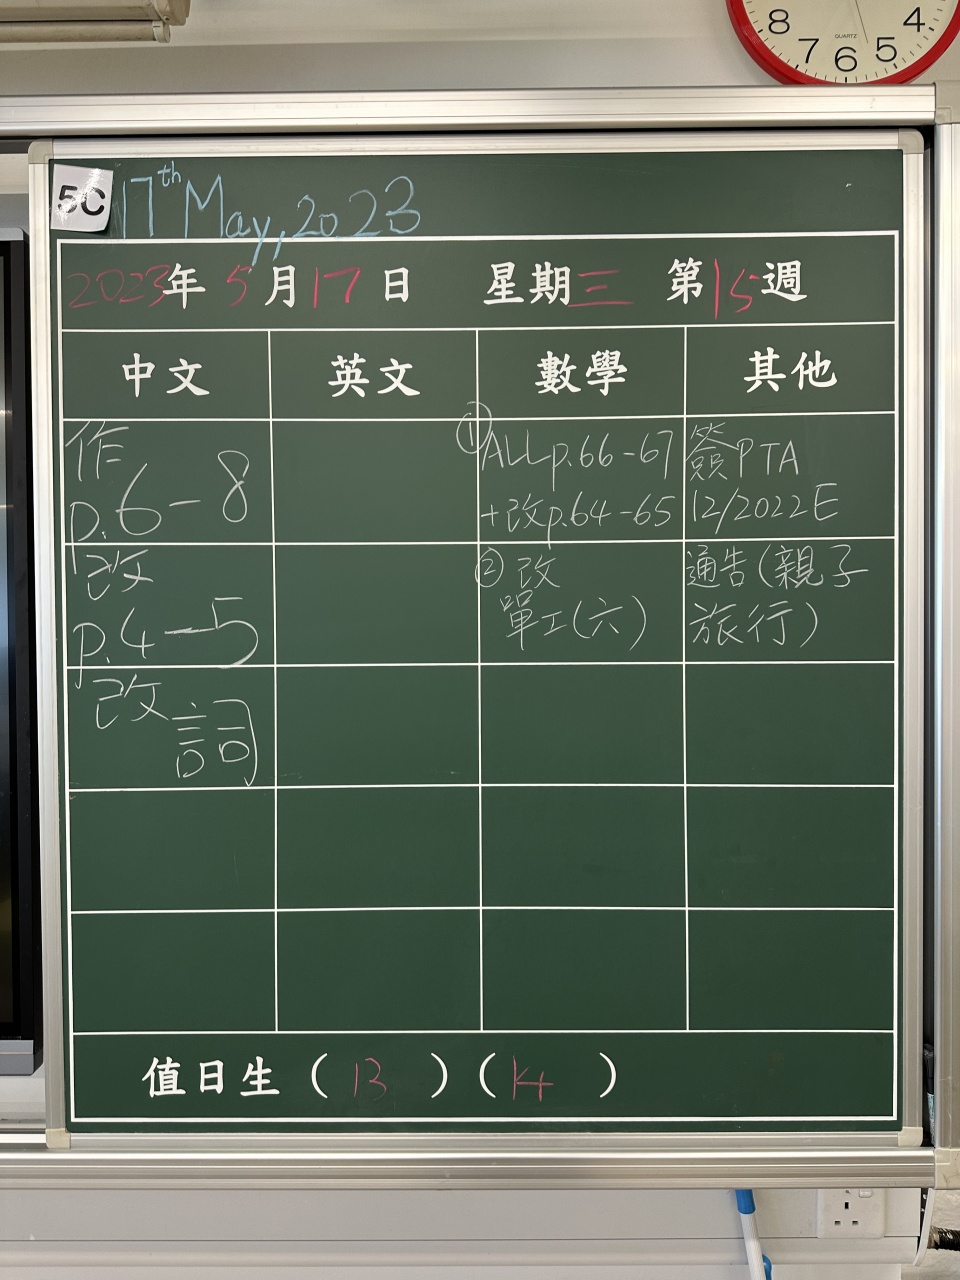 8 7 6 5 4
QUARTZ
5C 17th May, 2023
2023年 5月17日 星期三 第15週
中文 英文 數學 其他
作
p.6-8
① ALL p.66-67
+改p.64-65
簽PTA
12/2022E
改
p.4-5
② 改
單工(六)
通告(親子
旅行)
改詞
值日生(13)(14)